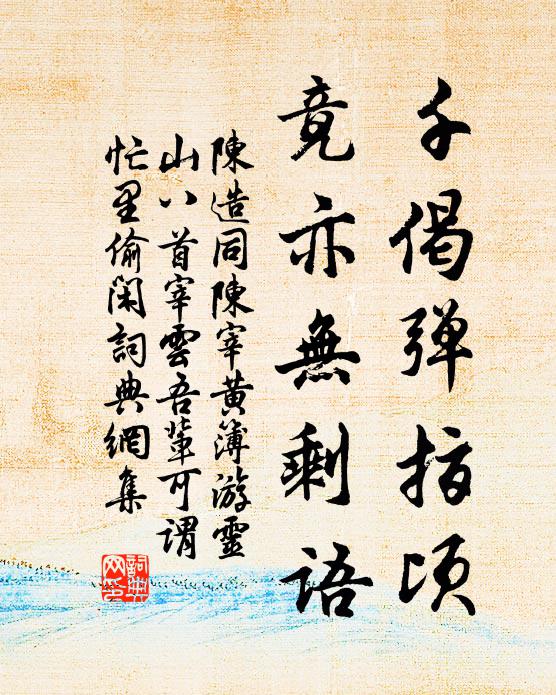 千偈弹指顷
竟亦無剩语
陳造同陳宰黄簿游靈
山八首宰雲吾輩可谓
忙里偷闲詞典網集
詞典
网印